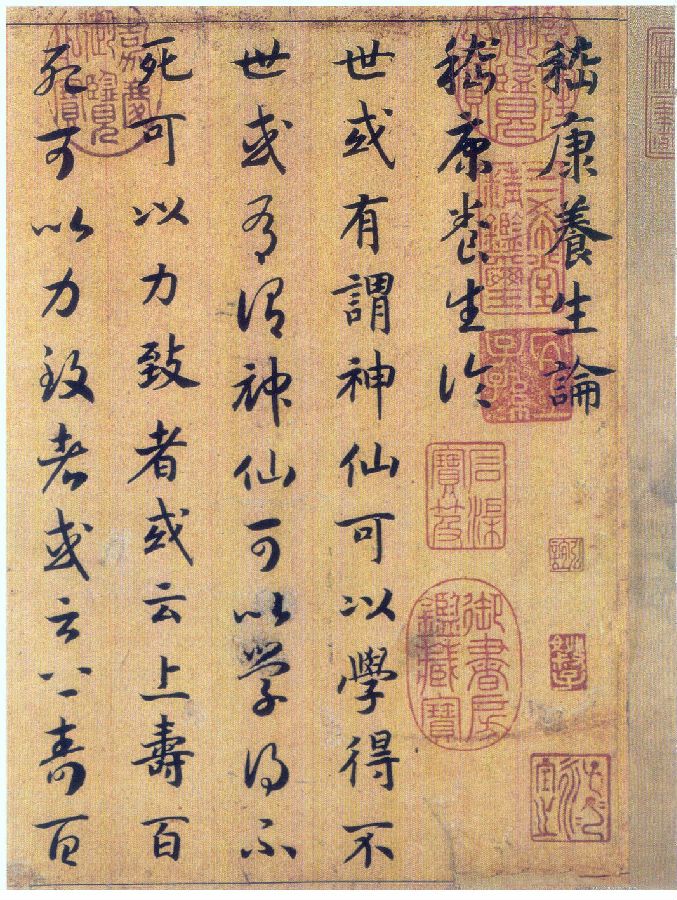 嵇康養生論
嵇康養生論
世或有謂神仙可以學得不
世或有謂神仙可以學得不
死可以力致者或云上壽百
死可以力致者或云上壽百
嘉慶御覽之寶
三希堂精鑑璽
御書房鑑藏寶